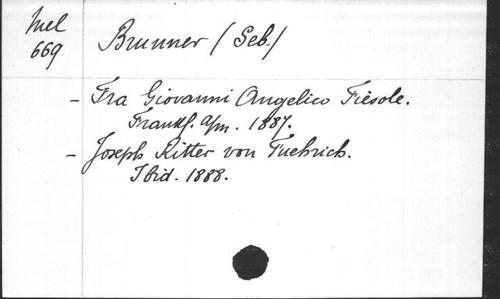 Mel
669
Brunner (Seb.)
- Fra Giovanni Angelico Fiesole.
Frankf. a/m. 1887.
- Joseph Ritter von Fuehrich.
Ibid. 1888.